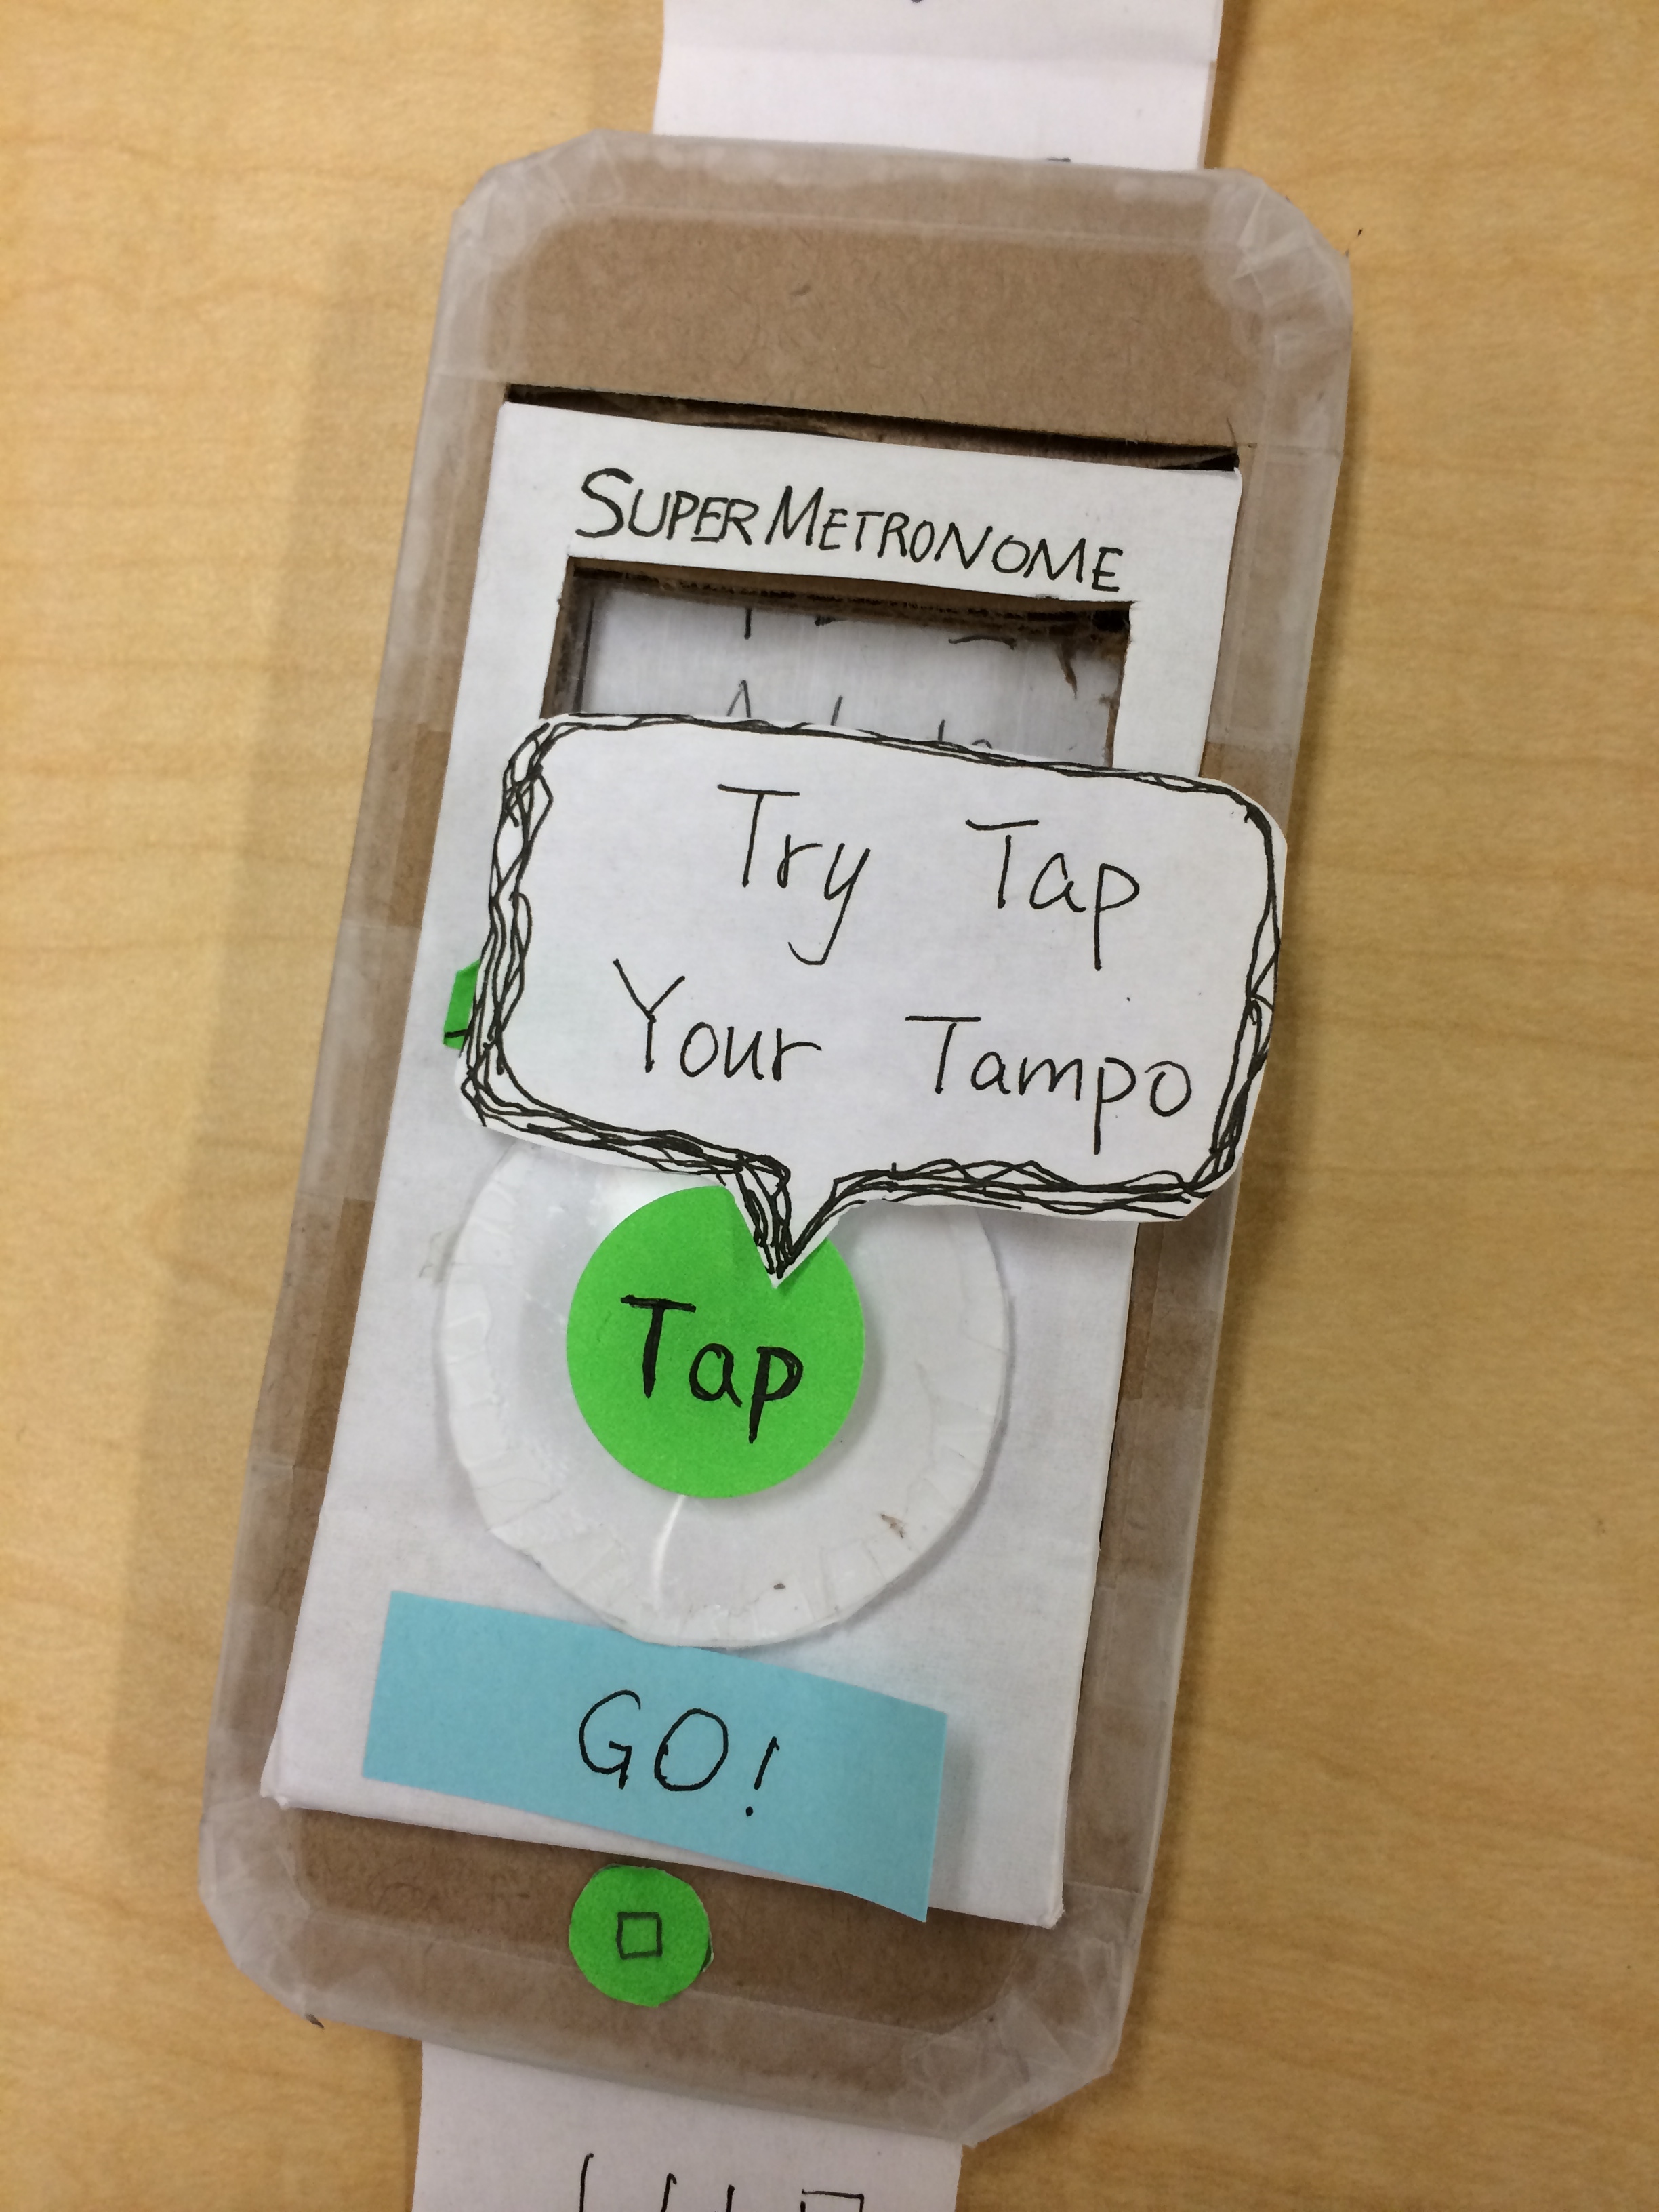 SUPER METRONOME
Try Tap
Your Tampo
Tap
GO!